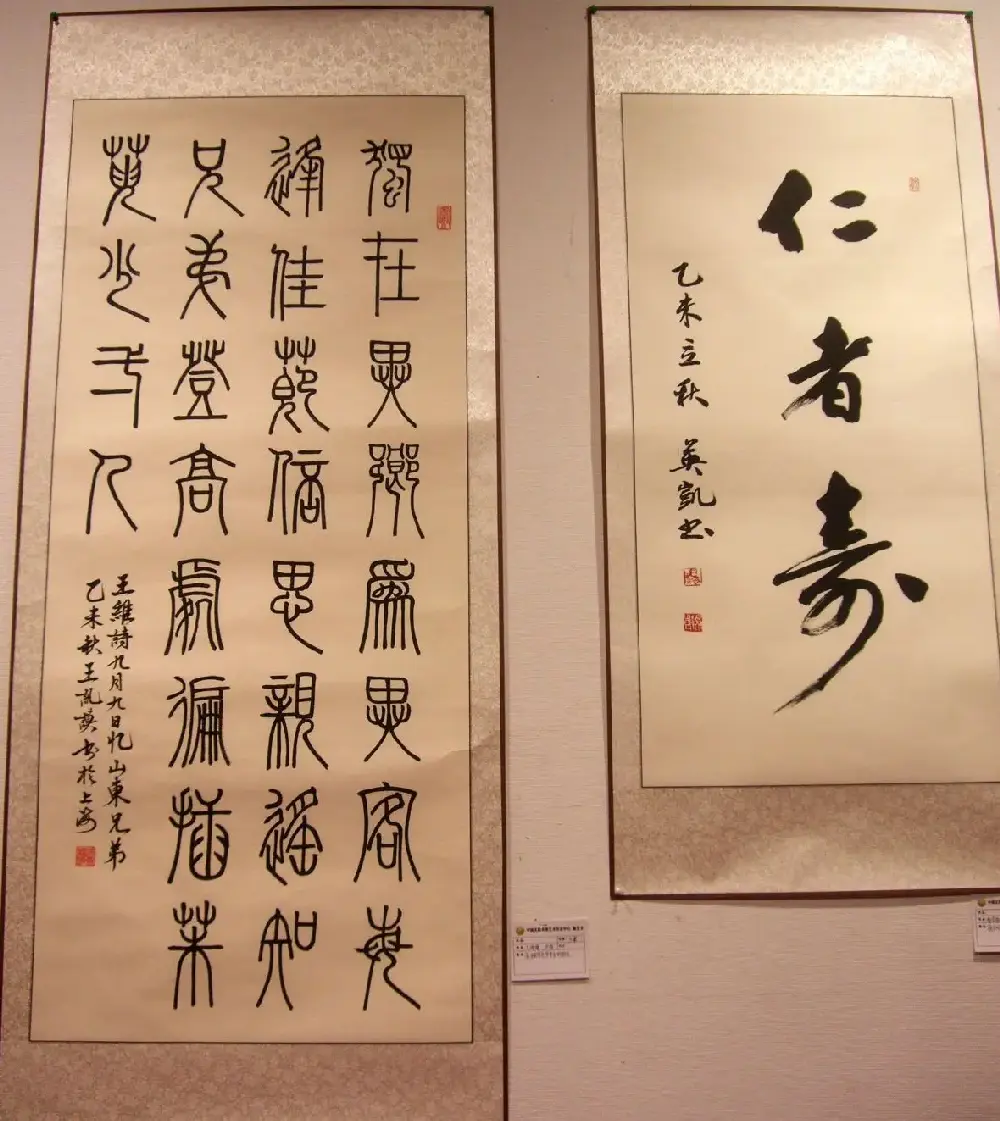 獨在異鄉爲異客每
逢佳節倍思親遙知
兄弟登高處徧插茱
萸少一人
王維詩九月九日忆山東兄弟
乙未秋王書於上海
仁者寿
乙未立秋 英凱书